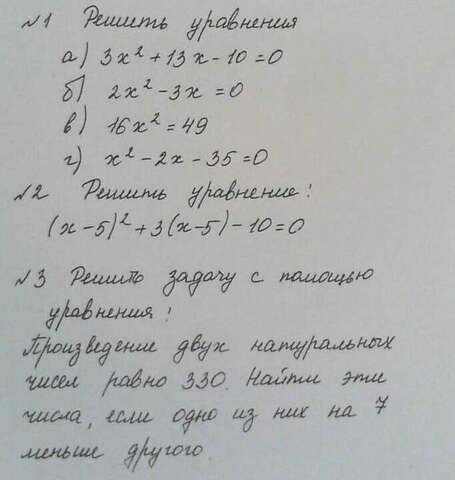 №1 Решить уравнения
а) 3x² + 13x - 10 = 0
б) 2x² - 3x = 0
в) 16x² = 49
г) x² - 2x - 35 = 0
№2 Решить уравнение:
(x-5)² + 3(x-5) - 10 = 0
№3 Решить задачу с помощью
уравнения:
Произведение двух натуральных
чисел равно 330. Найти эти
числа, если одно из них на 7
меньше другого.